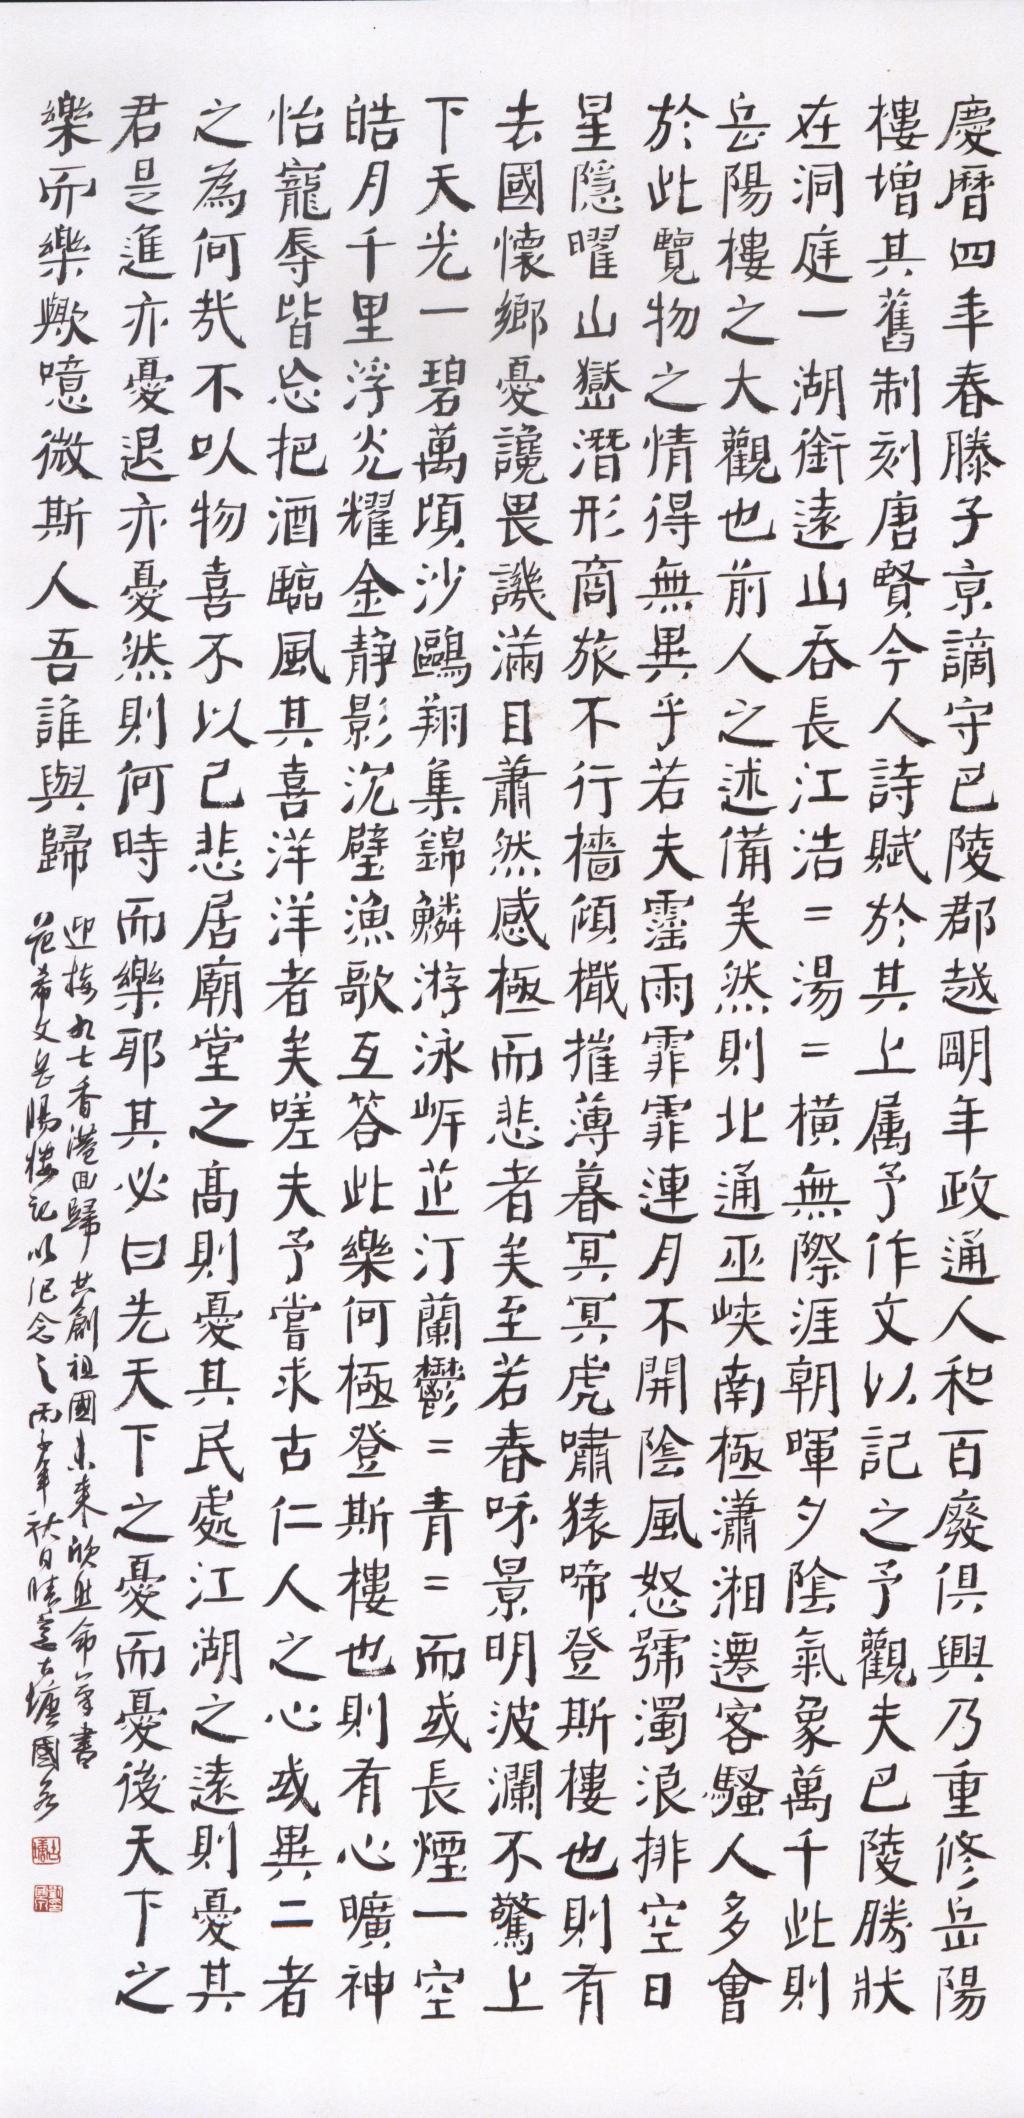 慶曆四年春滕子京謫守巴陵郡越明年政通人和百廢俱興乃重修岳陽
樓增其舊制刻唐賢今人詩賦於其上属予作文以記之予觀夫巴陵勝狀
在洞庭一湖銜遠山吞長江浩=湯=橫無際涯朝暉夕陰氣象萬千此則
岳陽樓之大觀也前人之述備矣然則北通巫峽南極瀟湘遷客騷人多會
於此覽物之情得無異乎若夫霪雨霏霏連月不開陰風怒號濁浪排空日
星隱曜山嶽潛形商旅不行檣傾檝摧薄暮冥冥虎嘯猿啼登斯樓也則有
去國懷鄉憂讒畏譏滿目蕭然感極而悲者矣至若春和景明波瀾不驚上
下天光一碧萬頃沙鷗翔集錦鱗游泳岸芷汀蘭鬱=青=而或長煙一空
皓月千里浮光耀金静影沉璧漁歌互答此樂何極登斯樓也則有心曠神
怡寵辱皆忘把酒臨風其喜洋洋者矣嗟夫予嘗求古仁人之心或異二者
之為何哉不以物喜不以己悲居廟堂之高則憂其民處江湖之遠則憂其
君是進亦憂退亦憂然則何時而樂耶其必曰先天下之憂而憂後天下之
樂而樂歟噫微斯人吾誰與歸
迎接九七香港回歸共創祖國未來欣然命筆書
范希文岳陽楼記以纪念之丙子年秋日晴窓古壙國